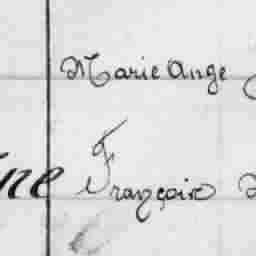 Marie Ange
ne Françoise